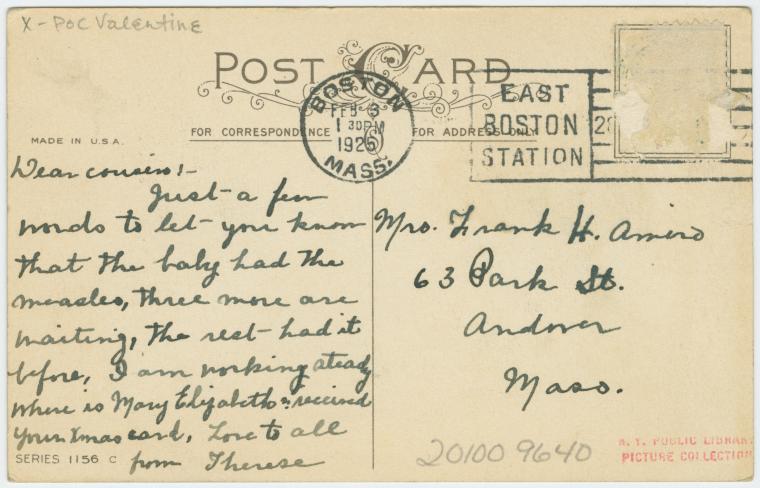 X - POC Valentine
POST CARD
BOSTON
FEB 3
1 30PM
1925
MASS.
EAST
BOSTON
STATION
MADE IN U.S.A.
FOR CORRESPONDENCE
FOR ADDRESS ONLY
Dear cousins:-
Just a few
words to let you know
that the baby had the
measles, three more are
waiting, the rest had it
before, I am working steady
where is Mary Elizabeth received
your Xmas card, Love to all
from Therese
Mrs. Frank H. Amiro
63 Park St.
Andover
Mass.
SERIES 1156 C
20100 9640
N. Y. PUBLIC LIBRARY
PICTURE COLLECTION